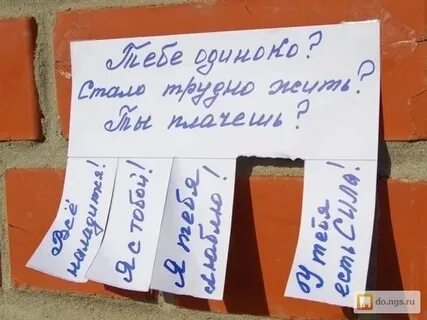 Тебе одиноко?
Стало трудно жить?
Ты плачешь?
Всё
наладится!
Я с тобой!
Я тебя
люблю!
У тебя
есть СИЛА!
do.ngs.ru